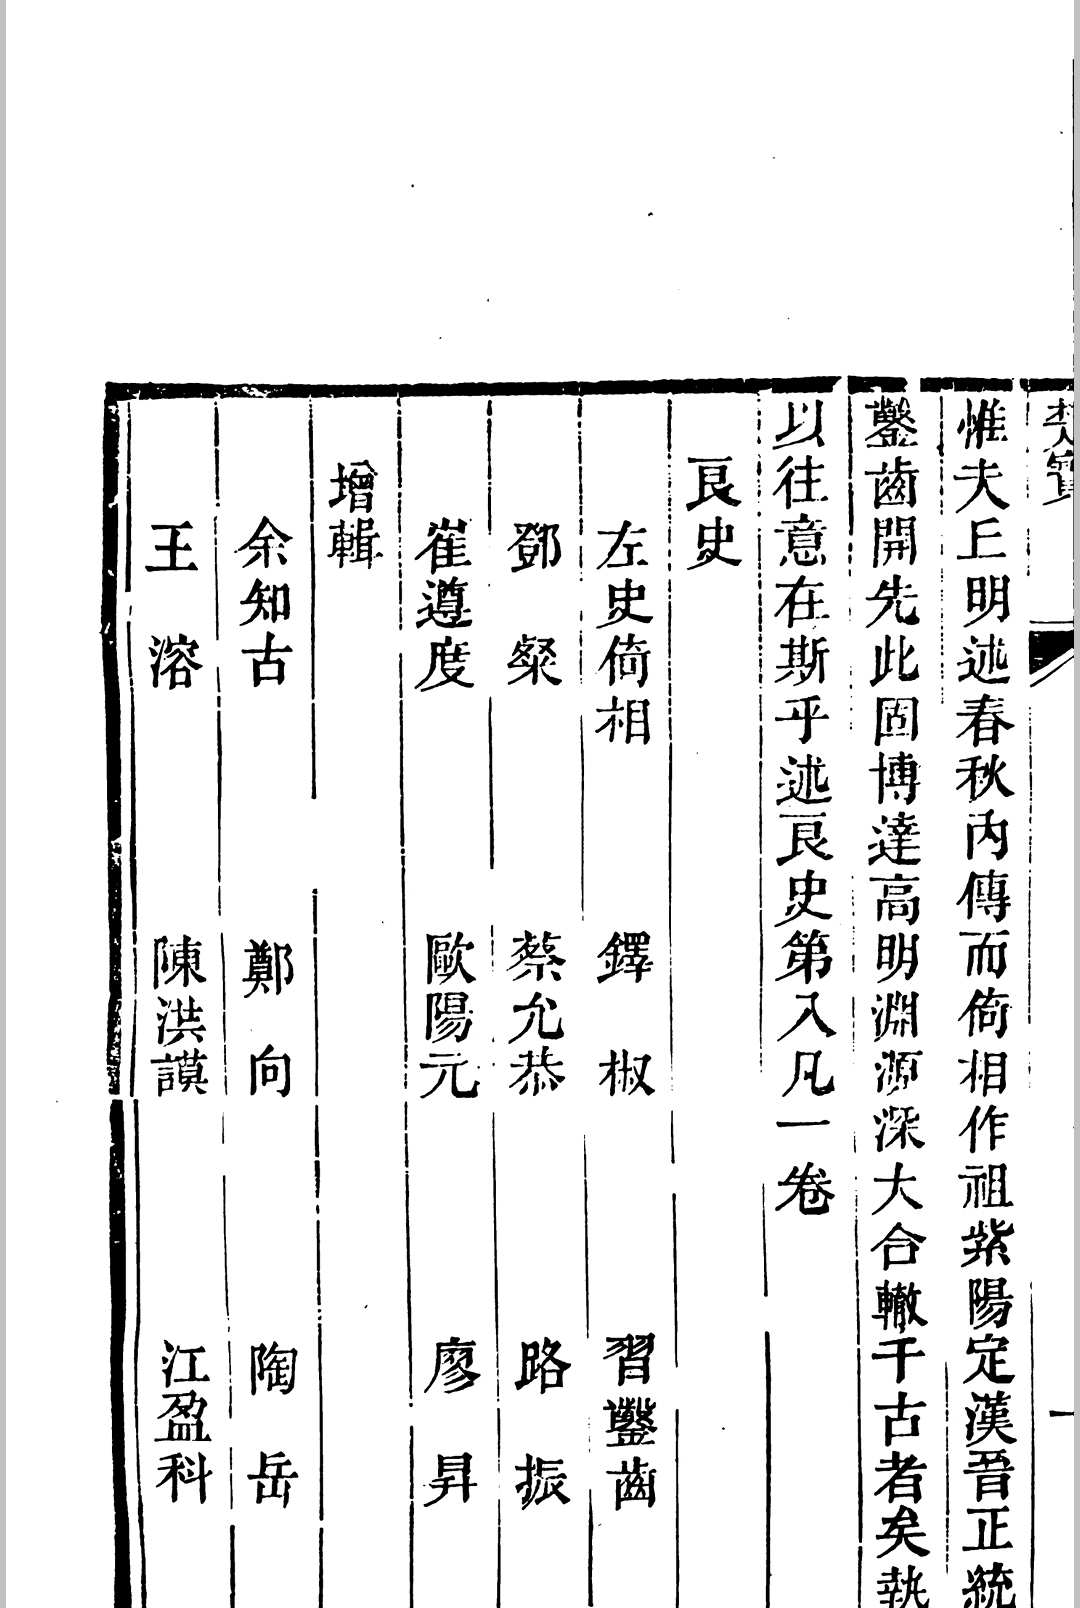 楚寶
一
惟夫丘明述春秋內傳而倚相作祖紫陽定漢晉正統
鑿齒開先此固博達高明淵源深大合轍千古者矣執
以往意在斯乎述良史第入凡一卷
良史
左史倚相 鐸 椒 習鑿齒
鄧 粲 蔡允恭 路 振
崔遵度 歐陽元 廖 昇
增輯
余知古 鄭 向 陶 岳
王 溶 陳洪謨 江盈科